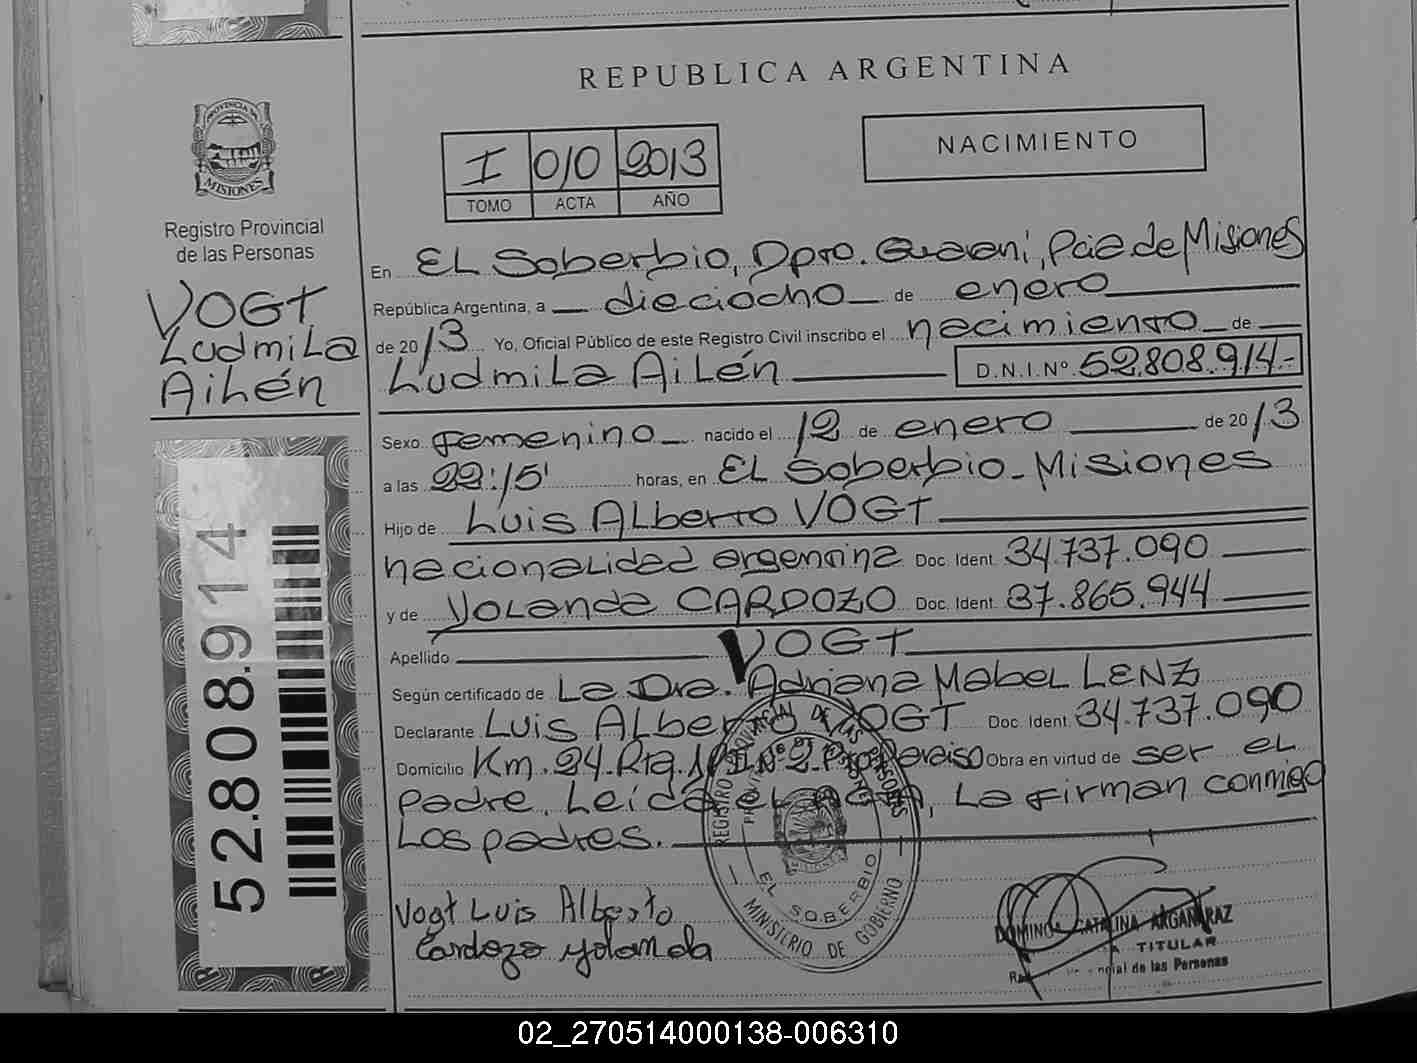 REPUBLICA ARGENTINA
PROVINCIA DE
MISIONES
Registro Provincial
de las Personas
NACIMIENTO
I 010 2013
TOMO ACTA AÑO
VOGT
Ludmila
Ailén
52.808.914
En EL Soberbio, Dpto. Guaraní, Pcia de Misiones
República Argentina, a dieciocho de enero
de 2013 Yo, Oficial Público de este Registro Civil inscribo el nacimiento de
Ludmila Ailén D.N.I.Nº 52.808.914.-
Sexo femenino nacido el 12 de enero de 2013
a las 22:15' horas, en EL Soberbio - Misiones
Hijo de Luis Alberto VOGT
nacionalidad argentina Doc. Ident. 34.737.090
y de Yolanda CARDOZO Doc. Ident. 37.865.944
Apellido VOGT
Según certificado de La Dra. Adriana Mabel LENZ
Declarante Luis Alberto VOGT Doc. Ident. 34.737.090
Domicilio Km. 24. Rta. Nº 2. Paraiso Obra en virtud de ser el
padre. Leída el acta, La firman conmigo
Los padres.
REGISTRO PROVINCIAL DE LAS PERSONAS
EL SOBERBIO
MINISTERIO DE GOBIERNO
Vogt Luis Alberto
Cardozo yolanda
CATALINA ARGAÑARAZ
TITULAR
de las Personas
02_270514000138-006310